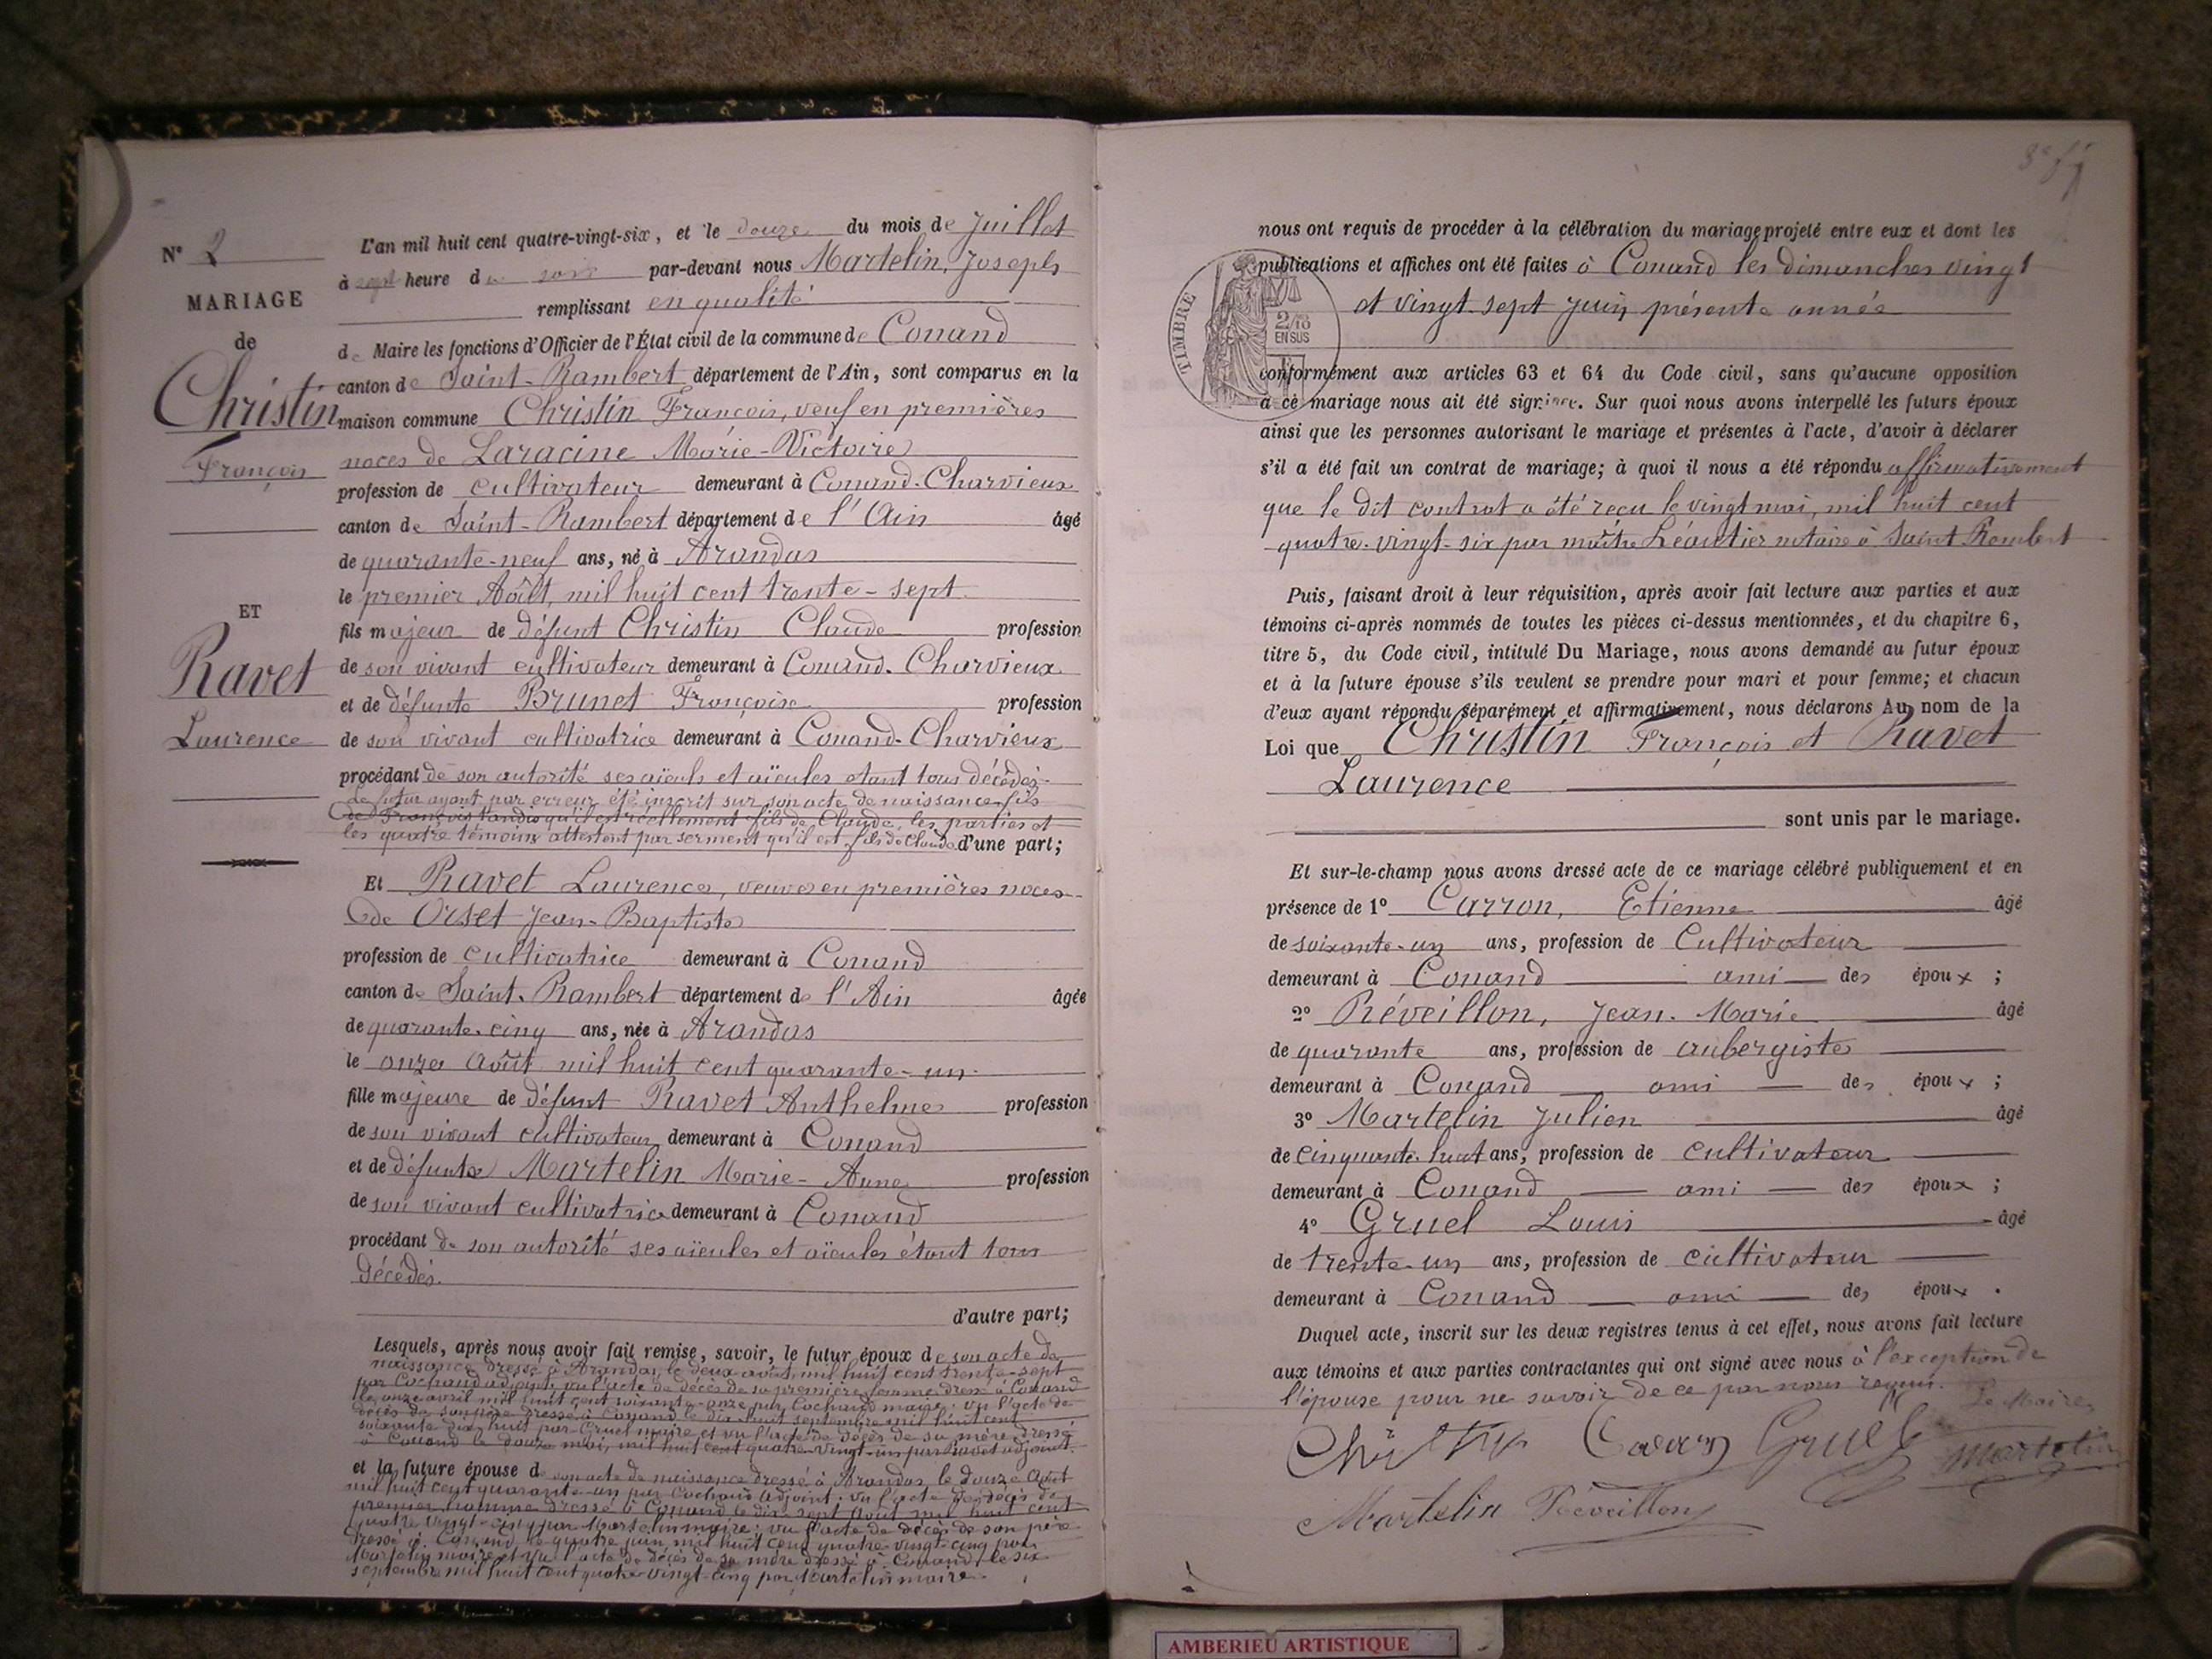 N° 2
MARIAGE
de
Christin
François
ET
Ravet
Laurence
L'an mil huit cent quatre-vingt-six, et le douze du mois de Juillet
à sept heure du soir par-devant nous Martelin, Joseph
remplissant en qualité
de Maire les fonctions d'Officier de l'État civil de la commune de Conand
canton de Saint-Rambert département de l'Ain, sont comparus en la
maison commune Christin François, veuf en premières
noces de Laracine Marie-Victoire
profession de cultivateur demeurant à Conand-Charvieux
canton de Saint-Rambert département de l'Ain âgé
de quarante-neuf ans, né à Arandas
le premier Août, mil huit cent trente-sept
fils majeur de défunt Christin Claude profession
de son vivant cultivateur demeurant à Conand-Charvieux
et de défunte Brunet Françoise profession
de son vivant cultivatrice demeurant à Conand-Charvieux
procédant de son autorité ses aïeuls et aïeules étant tous décédés.
Le futur ayant par erreur été inscrit sur son acte de naissance fils
de François tandis qu'il est réellement fils de Claude, les parties et
les quatre témoins attestent par serment qu'il est fils de Claude d'une part;
Et Ravet Laurence, veuve en premières noces
de Orset Jean-Baptiste
profession de cultivatrice demeurant à Conand
canton de Saint-Rambert département de l'Ain âgée
de quarante-cinq ans, née à Arandas
le onze août mil huit cent quarante-un
fille majeure de défunt Ravet Anthelme profession
de son vivant cultivateur demeurant à Conand
et de défunte Martelin Marie-Anne profession
de son vivant cultivatrice demeurant à Conand
procédant de son autorité ses aïeules et aïeules étant tous
décédés.
d'autre part;
Lesquels, après nous avoir fait remise, savoir, le futur époux de son acte de
naissance dressé à Arandas le deux août, mil huit cent trente-sept
par Cochand adjoint; vu l'acte de décès de sa première femme dressé à Conand
le onze avril mil huit cent soixante-onze par Cochand maire; vu l'acte de
décès de son père dressé à Conand le dix-huit septembre mil huit cent
soixante dix-huit par Gruel maire et vu l'acte de décès de sa mère dressé
à Conand le douze mai, mil huit cent quatre-vingt-un par Ravet adjoint.
et la future épouse de son acte de naissance dressé à Arandas, le douze Août
mil huit cent quarante-un par Cochand adjoint; vu l'acte de décès de
premier homme dressé à Conand le dix-sept Août mil huit cent
quatre-vingt-cinq par Martelin maire; vu l'acte de décès de son père
dressé à Conand, le quatre juin mil huit cent quatre-vingt-cinq par
Martelin maire et vu l'acte de décès de sa mère dressé à Conand le six
septembre mil huit cent quatre-vingt-cinq par Martelin maire.
nous ont requis de procéder à la célébration du mariage projeté entre eux et dont les
publications et affiches ont été faites à Conand les dimanches vingt
et vingt-sept juin présente année
TIMBRE
2/10
EN SUS
conformément aux articles 63 et 64 du Code civil, sans qu'aucune opposition
à ce mariage nous ait été signifiée. Sur quoi nous avons interpellé les futurs époux
ainsi que les personnes autorisant le mariage et présentes à l'acte, d'avoir à déclarer
s'il a été fait un contrat de mariage; à quoi il nous a été répondu affirmativement
que le dit contrat a été reçu le vingt mai, mil huit cent
quatre-vingt-six par maître Léautier notaire à Saint Rambert
Puis, faisant droit à leur réquisition, après avoir fait lecture aux parties et aux
témoins ci-après nommés de toutes les pièces ci-dessus mentionnées, et du chapitre 6,
titre 5, du Code civil, intitulé Du Mariage, nous avons demandé au futur époux
et à la future épouse s'ils veulent se prendre pour mari et pour femme; et chacun
d'eux ayant répondu séparément et affirmativement, nous déclarons Au nom de la
Loi que Christin François et Ravet
Laurence
sont unis par le mariage.
Et sur-le-champ nous avons dressé acte de ce mariage célébré publiquement et en
présence de 1° Carron, Etienne âgé
de soixante-un ans, profession de Cultivateur
demeurant à Conand ami des époux;
2° Réveillon, Jean-Marie âgé
de quarante ans, profession de aubergiste
demeurant à Conand ami des époux;
3° Martelin Julien âgé
de cinquante-huit ans, profession de cultivateur
demeurant à Conand ami des époux;
4° Gruel Louis âgé
de trente-un ans, profession de cultivateur
demeurant à Conand ami des époux.
Duquel acte, inscrit sur les deux registres tenus à cet effet, nous avons fait lecture
aux témoins et aux parties contractantes qui ont signé avec nous à l'exception de
l'épouse pour ne savoir de ce par nous requis.
Le Maire
Christin Carron Gruel Martelin
Martelin Réveillon
AMBERIEU ARTISTIQUE